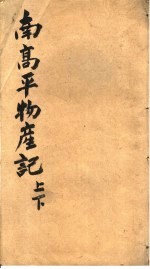 南髙平物産記
上下